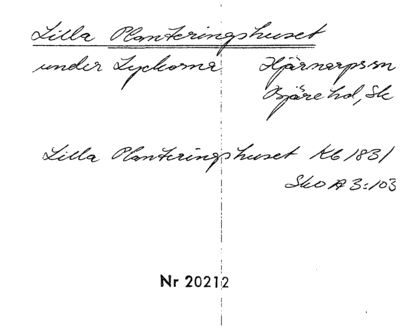 Lilla Planteringshuset
under Lyckorna Hjärnarps sn
Bjäre hd, Sk
Lilla Planteringshuset Kb 1831
Sko A 3:103
Nr 20212